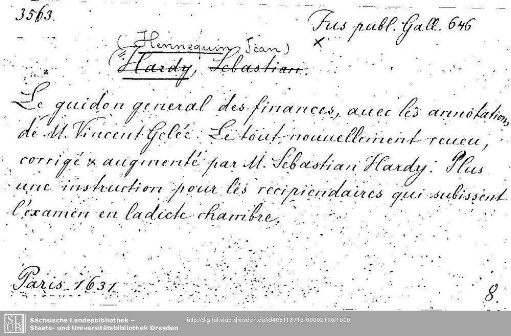 3563.
Jus publ. Gall. 646
x
(Hennequin, Jean)
(Hardy, Sebastian.
Le guidon general des finances, avec lès annotations
de M. Vincent Gelée. Le tout nouvellement reveu,
corrigé & augmenté par M. Sebastian Hardy. Plus
une instruction pour lès recipiendaires qui subissent
l'examen en ladicte chambre.
Paris. 1631.
8.
Sächsische Landesbibliothek –
Staats- und Universitätsbibliothek Dresden